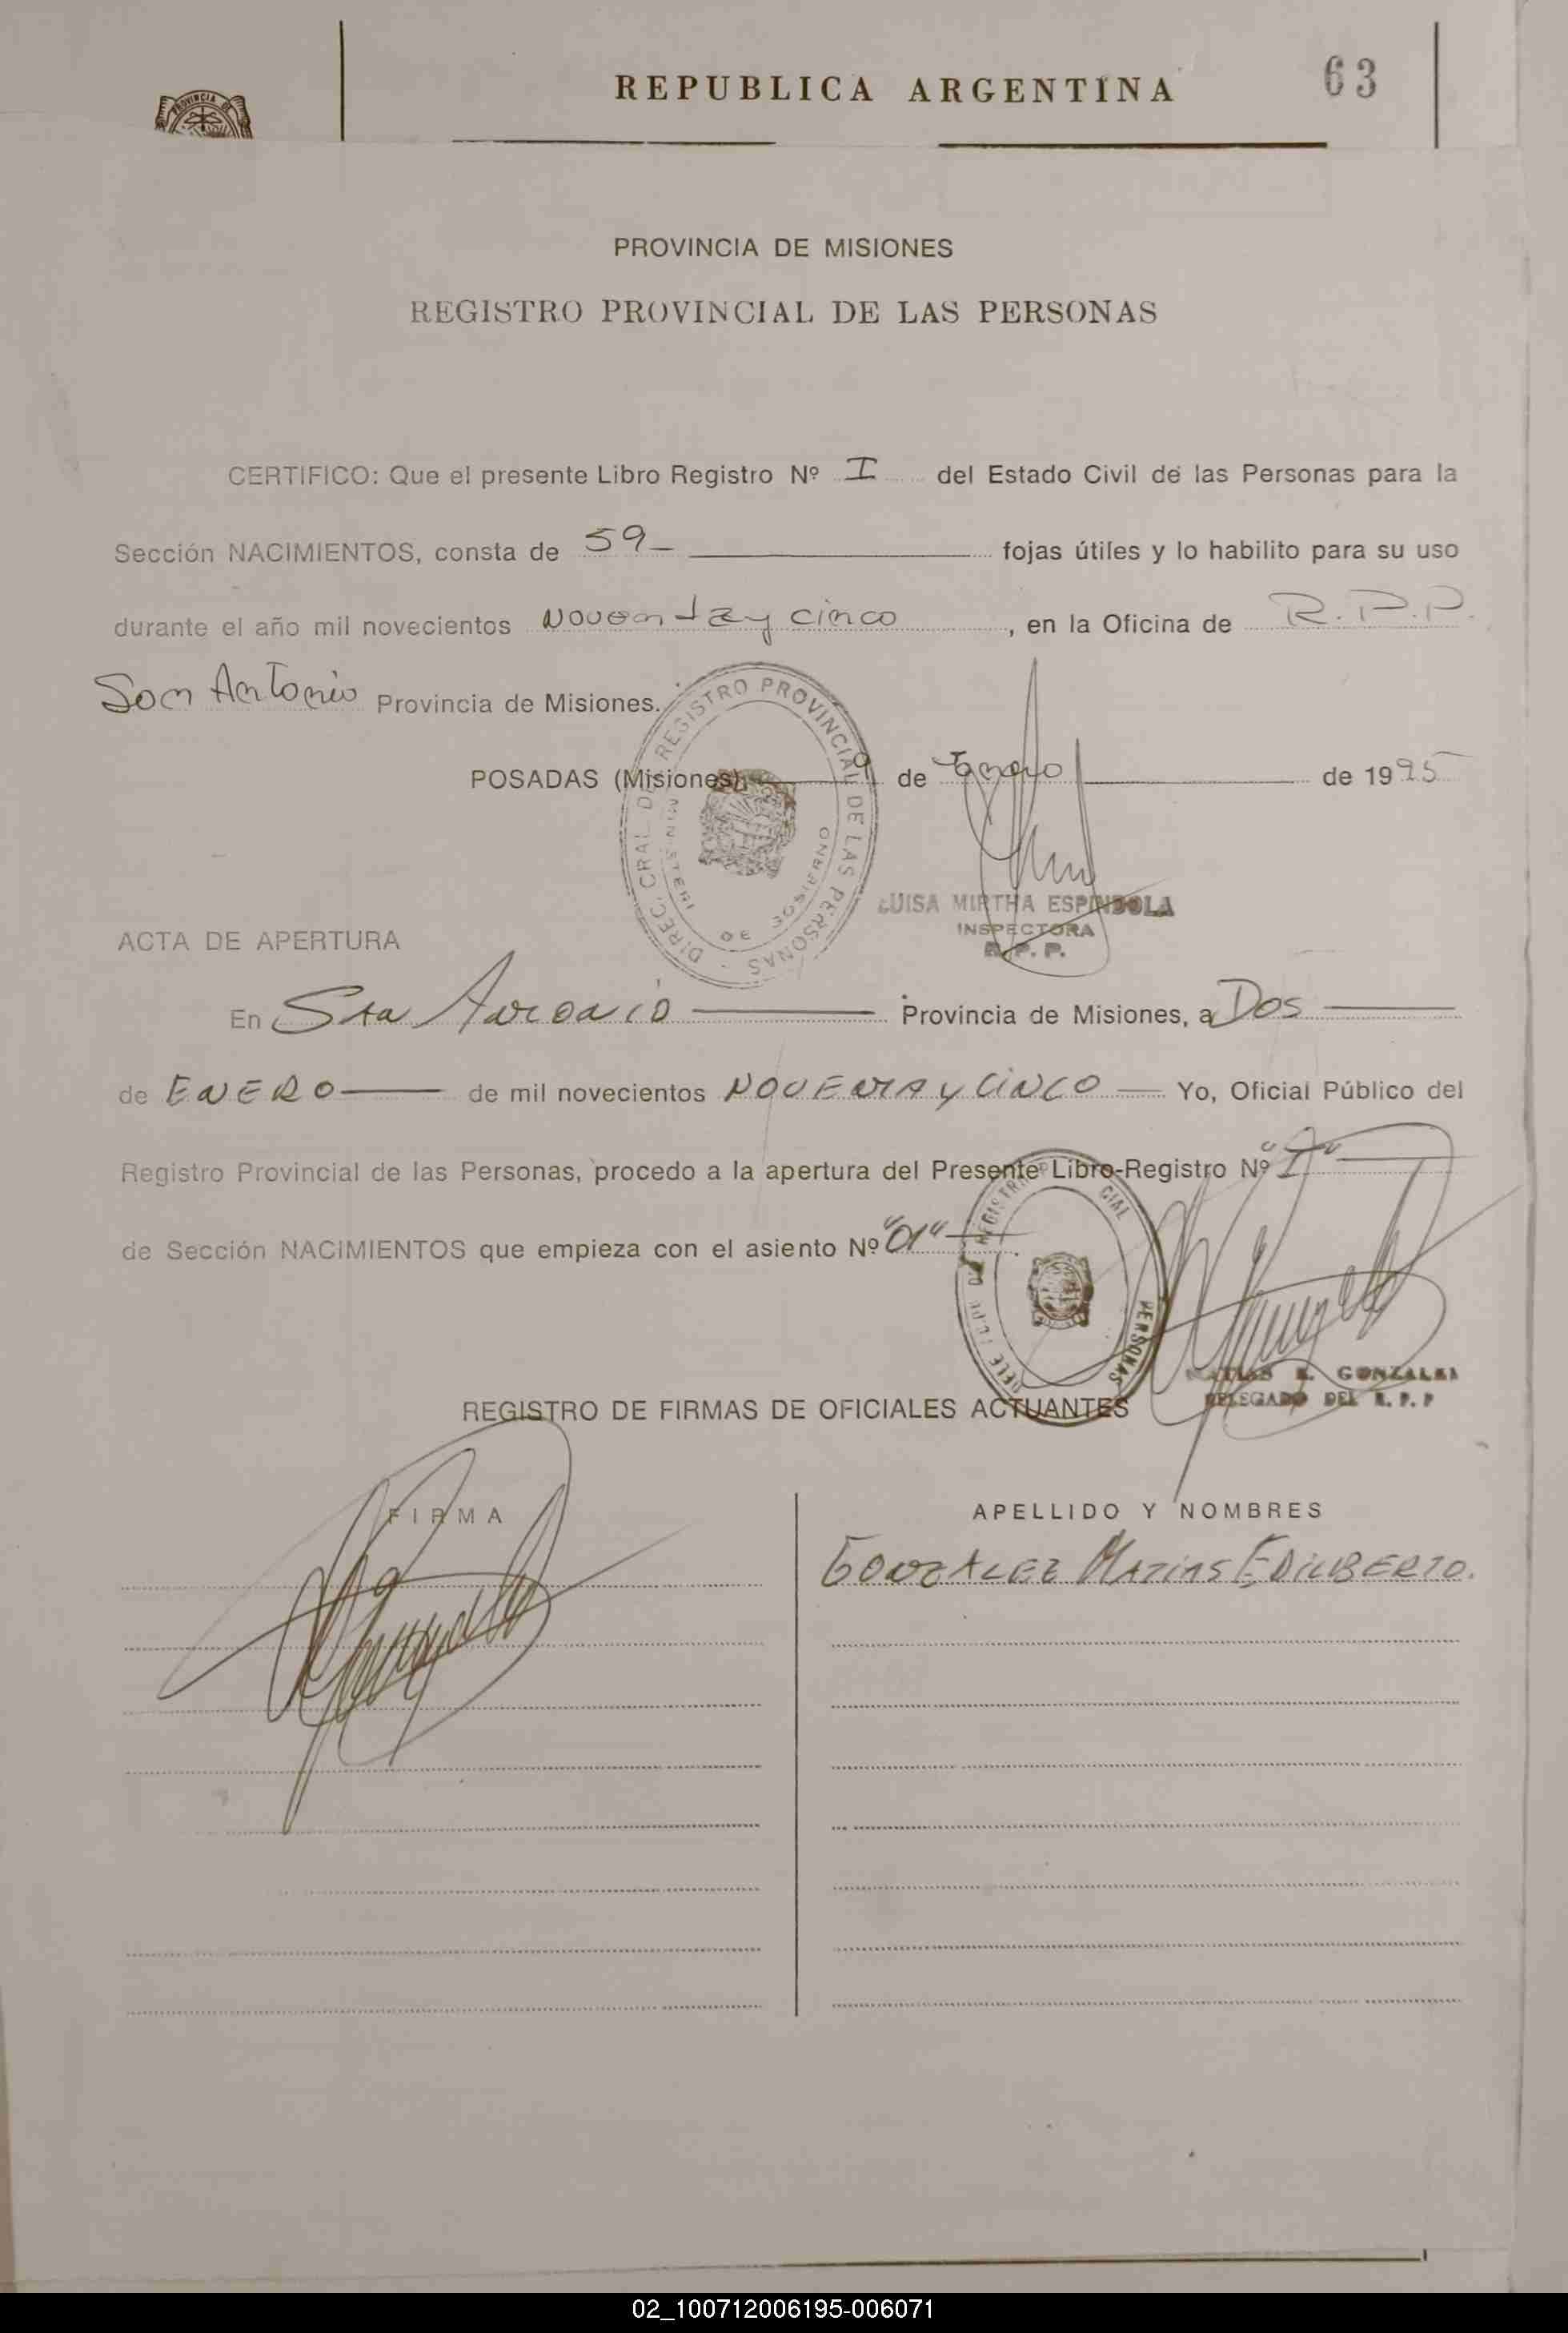 REPUBLICA ARGENTINA
63
PROVINCIA DE
PROVINCIA DE MISIONES
REGISTRO PROVINCIAL DE LAS PERSONAS
CERTIFICO: Que el presente Libro Registro Nº I del Estado Civil de las Personas para la
Sección NACIMIENTOS, consta de 59 fojas útiles y lo habilito para su uso
durante el año mil novecientos noventa y cinco, en la Oficina de R.P.P.
San Antonio Provincia de Misiones.
POSADAS (Misiones), de Enero de 1995
DIREC. GRAL. DE REGISTRO PROVINCIAL DE LAS PERSONAS
MINISTERI DE GOBIERNO
LUISA MIRTHA ESPINDOLA
INSPECTORA
R. P. P.
ACTA DE APERTURA
En San Antonio Provincia de Misiones, a Dos
de ENERO de mil novecientos NOVENTA Y CINCO Yo, Oficial Público del
Registro Provincial de las Personas, procedo a la apertura del Presente Libro-Registro Nº "I"
de Sección NACIMIENTOS que empieza con el asiento Nº "01"
PERSONAS
MATIAS E. GONZALEZ
DELEGADO DEL R. P. P
REGISTRO DE FIRMAS DE OFICIALES ACTUANTES
FIRMA
APELLIDO Y NOMBRES
GONZALEZ MATIAS EDILBERTO.
02_100712006195-006071